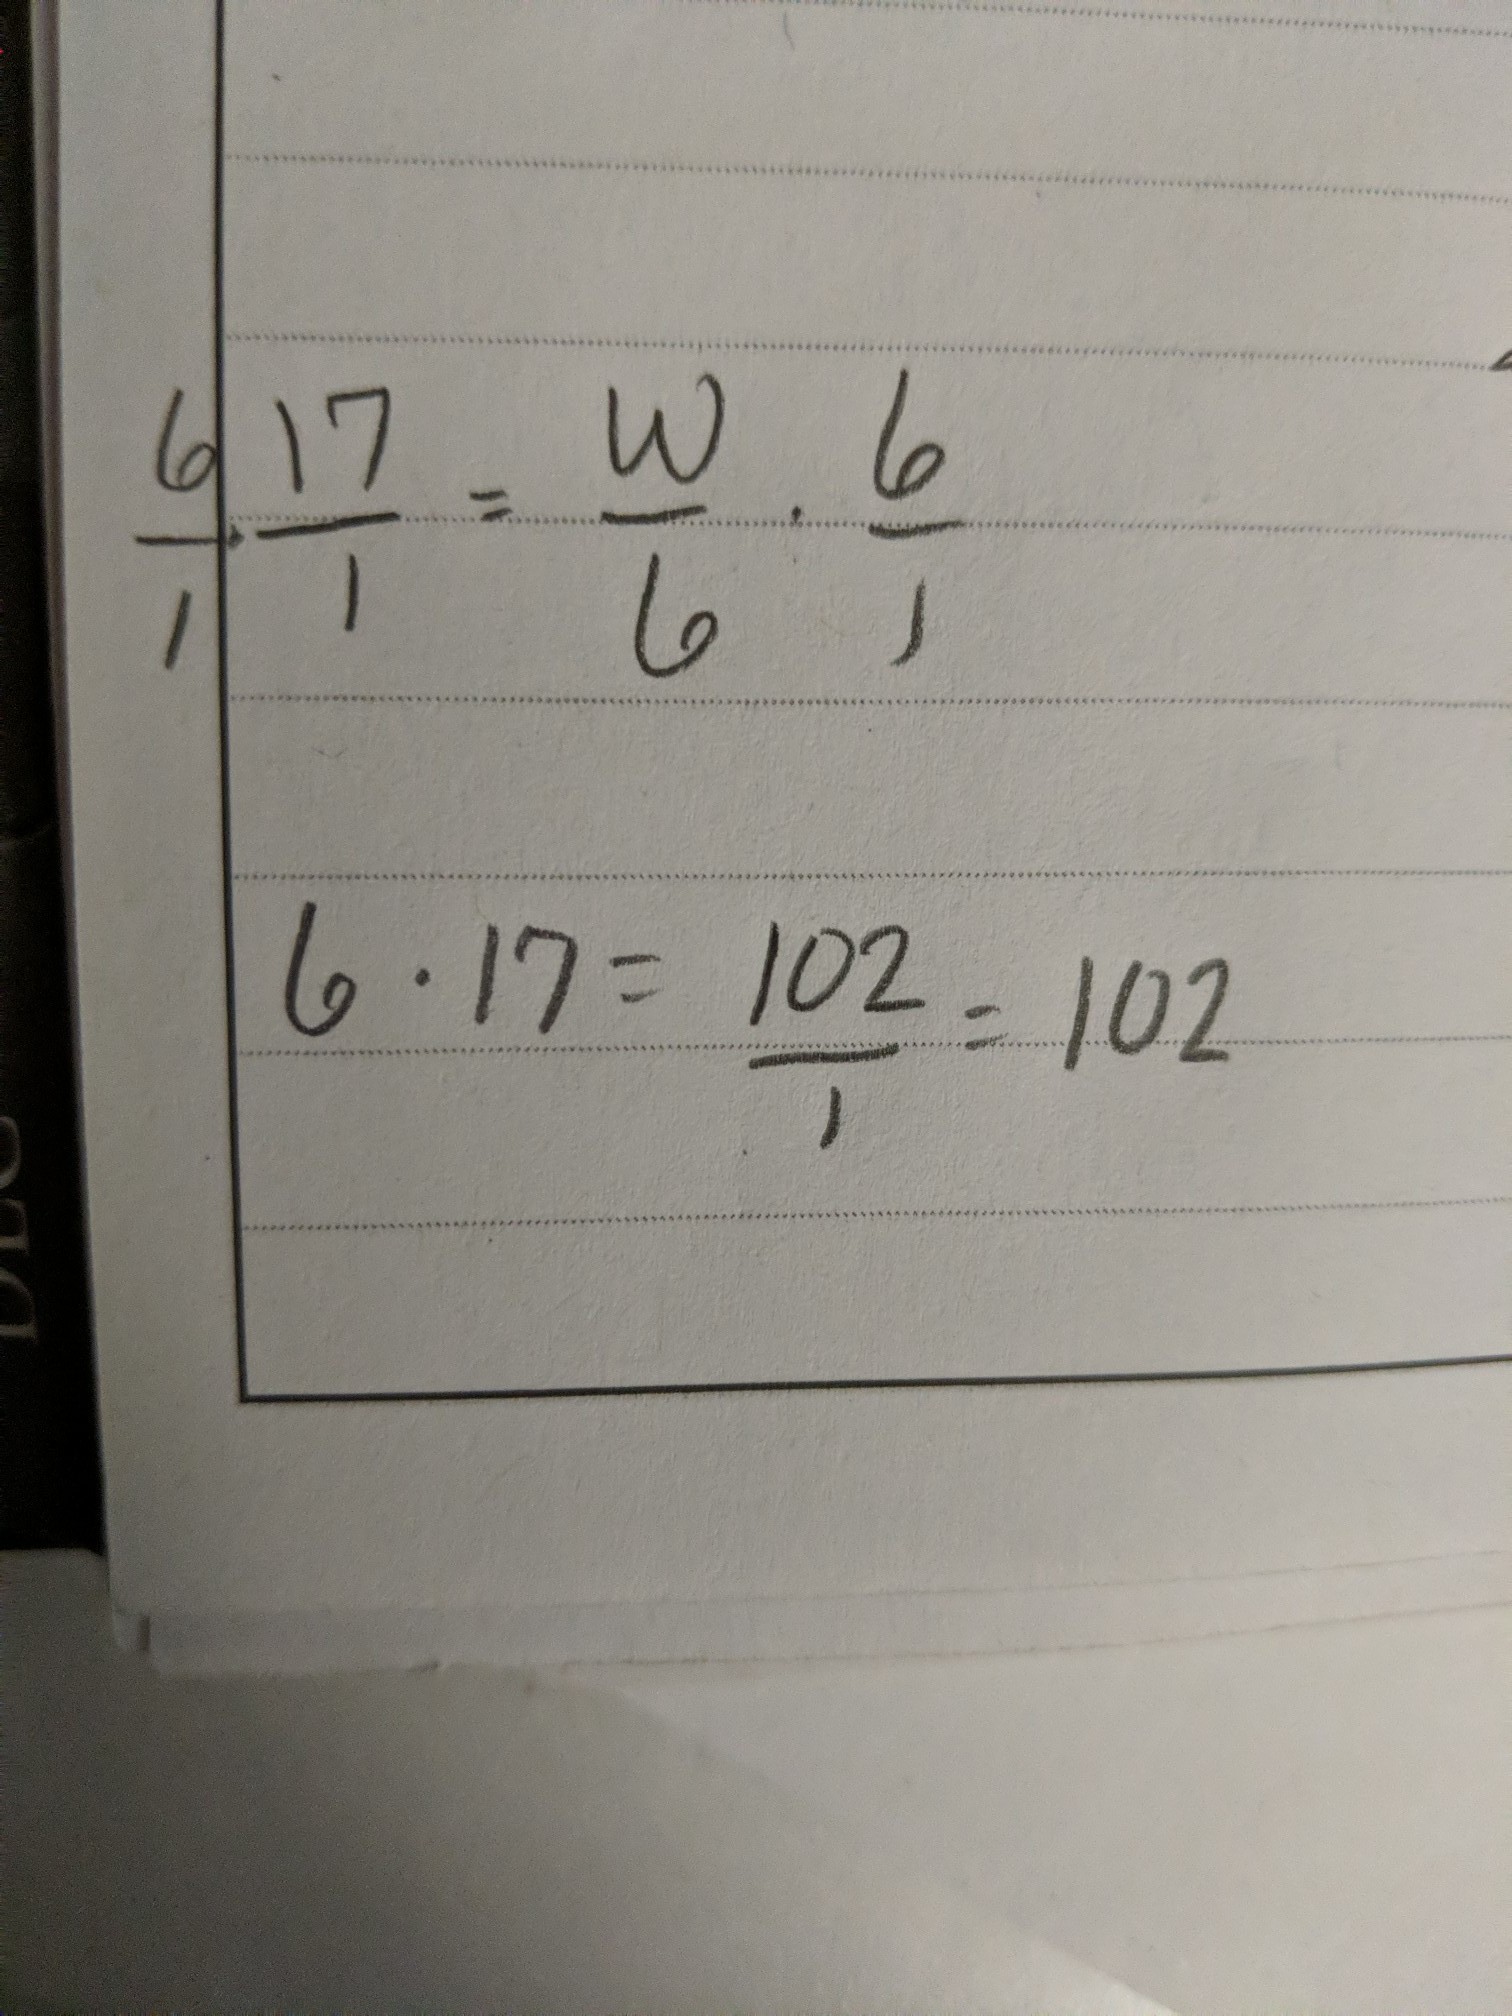 6/1 · 17/1 = W/6 · 6/1
6 · 17 = 102/1 = 102